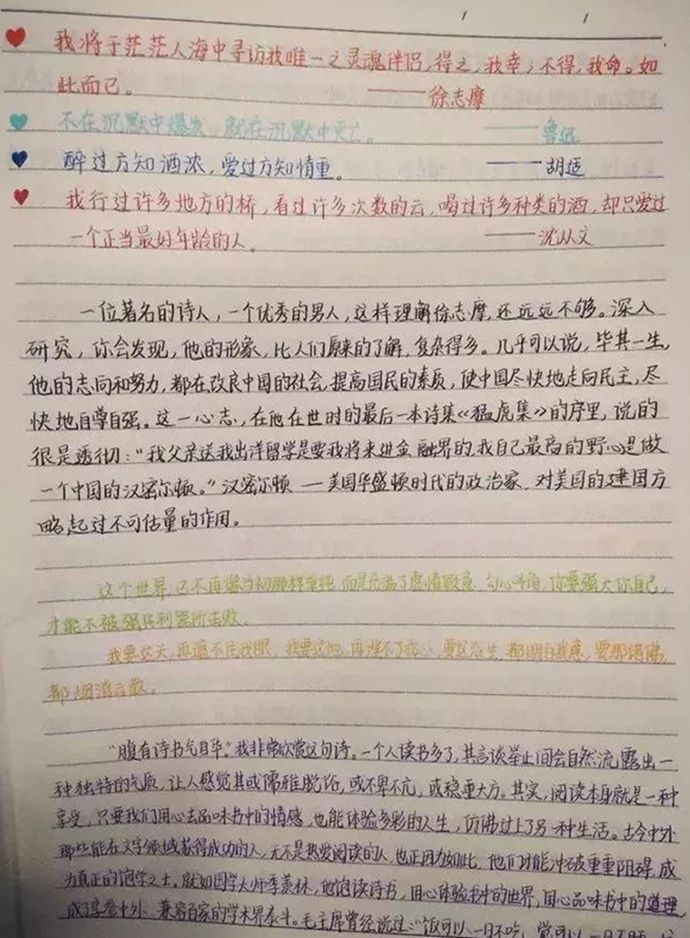 我将于茫茫人海中寻访我唯一之灵魂伴侣,得之,我幸;不得,我命。如
此而已。 ——徐志摩
不在沉默中爆发,就在沉默中灭亡。 ——鲁迅
醉过方知酒浓,爱过方知情重。 ——胡适
我行过许多地方的桥,看过许多次数的云,喝过许多种类的酒,却只爱过
一个正当最好年龄的人。 ——沈从文
一位著名的诗人,一个优秀的男人,这样理解徐志摩,还远远不够。深入
研究,你会发现,他的形象,比人们原来的了解,复杂得多。几乎可以说,毕其一生,
他的志向和努力,都在改良中国的社会,提高国民的素质,使中国尽快地走向民主,尽
快地自尊自强。这一心志,在他在世时的最后一本诗集《猛虎集》的序里,说的
很是透彻:“我父亲送我出洋留学是要我将来进金融界的,我自己最高的野心是做
一个中国的汉密尔顿。”汉密尔顿——美国华盛顿时代的政治家,对美国的建国方
略起过不可估量的作用。
这个世界,已不再像当初那样单纯,而是充满了虚情假意,勾心斗角,你要强大你自己,
才能不被强压利器所击败。
我要这天,再遮不住我眼,我要这地,再埋不了我心,要这众生,都明白我意,要那诸佛,
都烟消云散。
“腹有诗书气自华。”我非常欣赏这句诗。一个人读书多了,其言谈举止间会自然流露出一
种独特的气质,让人感觉其或儒雅脱俗,或不卑不亢,或稳重大方。其实,阅读本身就是一种
享受,只要我们用心去品味书中的情感,也能体验多彩的人生,仿佛过上了另一种生活。古今中外
那些能在文学领域获得成功的人,无不是热爱阅读的人,也正因为如此,他们才能冲破重重阻碍,成
为真正的饱学之士。就如国学大师季羡林,他饱读诗书,用心体验书中的世界,用心品味书中的道理,
成了享誉中外、兼容百家的学术界泰斗。毛主席曾经说过:“饭可以一日不吃,觉可以一日不睡,